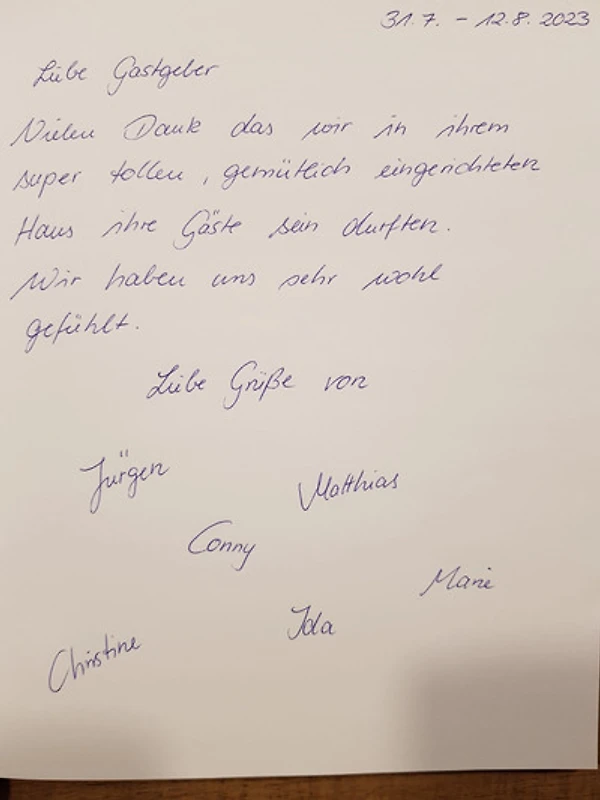 31.7. - 12.8.2023
Liebe Gastgeber
Vielen Dank das wir in ihrem
super tollen, gemütlich eingerichteten
Haus ihre Gäste sein durften.
Wir haben uns sehr wohl
gefühlt.
Liebe Grüße von
Jürgen
Matthias
Conny
Marie
Ida
Christine